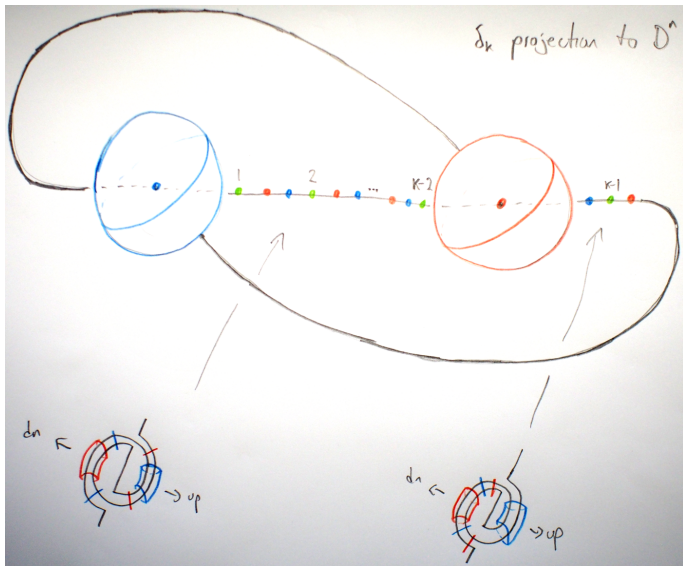 δₖ projection to Dⁿ
1 2 ... k-2 k-1
dn up
dn up